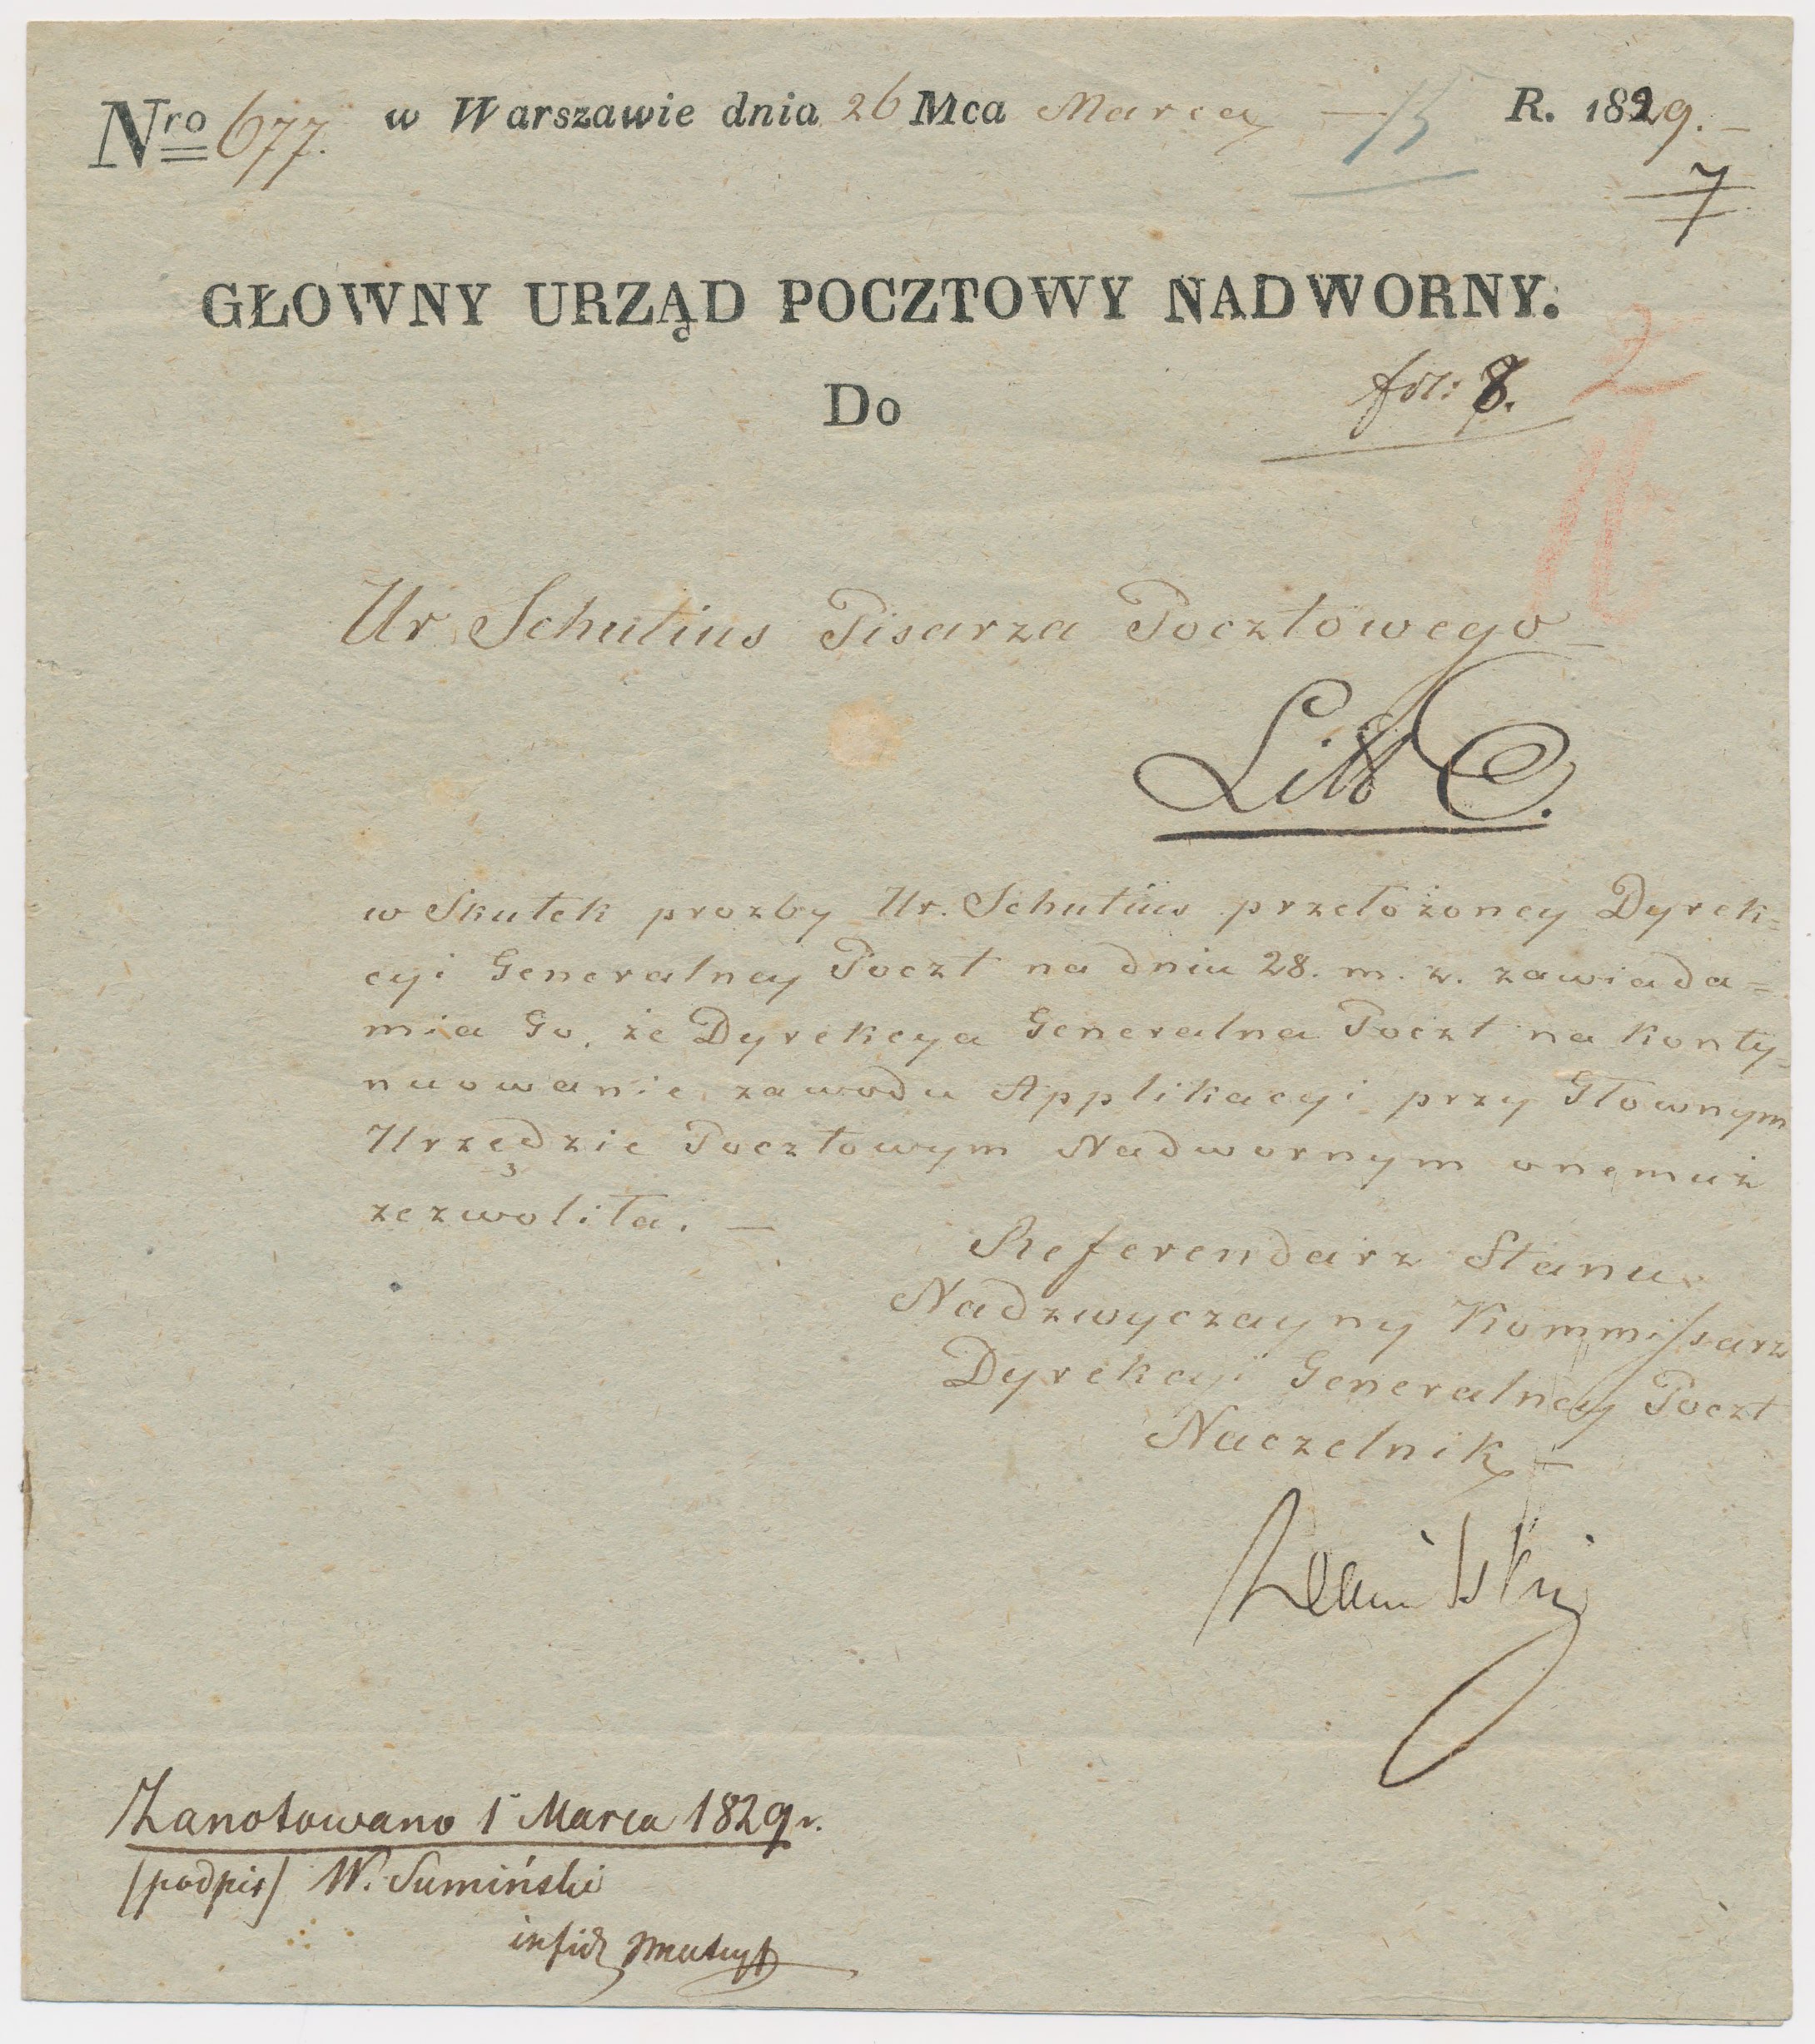 Nro 677. w Warszawie dnia 26 Mca Marca — 15 R. 1829. —
7
GŁOWNY URZĄD POCZTOWY NADWORNY.
2
Do
fol: 8.
16
Ur Schutius Pisarza Pocztowego
Litt C.
w Skutek prozby Ur. Schutius przełożoney Dyrek=
cyi Generalney Poczt na dniu 28. m. z. zawiada=
mia Go, że Dyrekcya Generalna Poczt na konty=
nuowanie zawodu Applikacyi przy Głownym
Urzędzie Pocztowym Nadwornym onemuż
zezwoliła. —
Referendarz Stanu
Nadzwyczayny Kommissarz
Dyrekcyi Generalney Poczt
Naczelnik —
Zanotowano 1 Marca 1829 r.
/podpis/ W. Sumiński